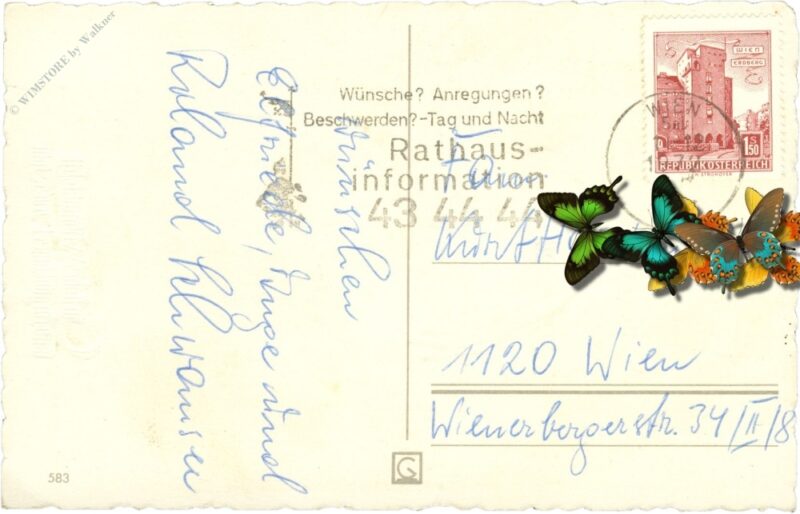 © WIMSTORE by Walkner
wünschen
Elfriede, Inge und
Roland Schwauser
583
G
Wünsche? Anregungen?
Beschwerden?-Tag und Nacht
Rathaus-
information
43 44 44
WIEN
WIEN
ERDBERG
S
1.50
REPUBLIK ÖSTERREICH
Fam.
Kurt
1120 Wien
Wienerbergerstr. 34/II/8